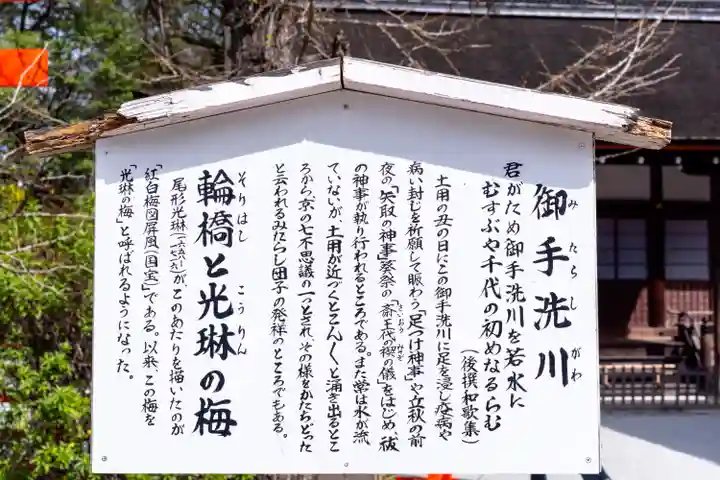 御手洗川
みたらしがわ
君がため御手洗川を若水に
むすぶや千代の初めなるらむ
（後撰和歌集）
土用の丑の日にこの御手洗川に足を浸し疫病や
病い封じを祈願して賑わう「足つけ神事」や立秋の前
夜の「矢取の神事」葵祭の「斎王代の禊の儀」をはじめ、祓
の神事が執り行われるところである。また常は水が流
ていないが、土用が近づくとこんこんと涌き出るとこ
ろから、京の七不思議の一つとされ、その様をかたちどった
と云われるみたらし団子の発祥のところでもある。
輪橋と光琳の梅
そりはし こうりん
尾形光琳がこのあたりを描いたのが
「紅白梅図屏風」（国宝）である。以来、この梅を
「光琳の梅」と呼ばれるようになった。